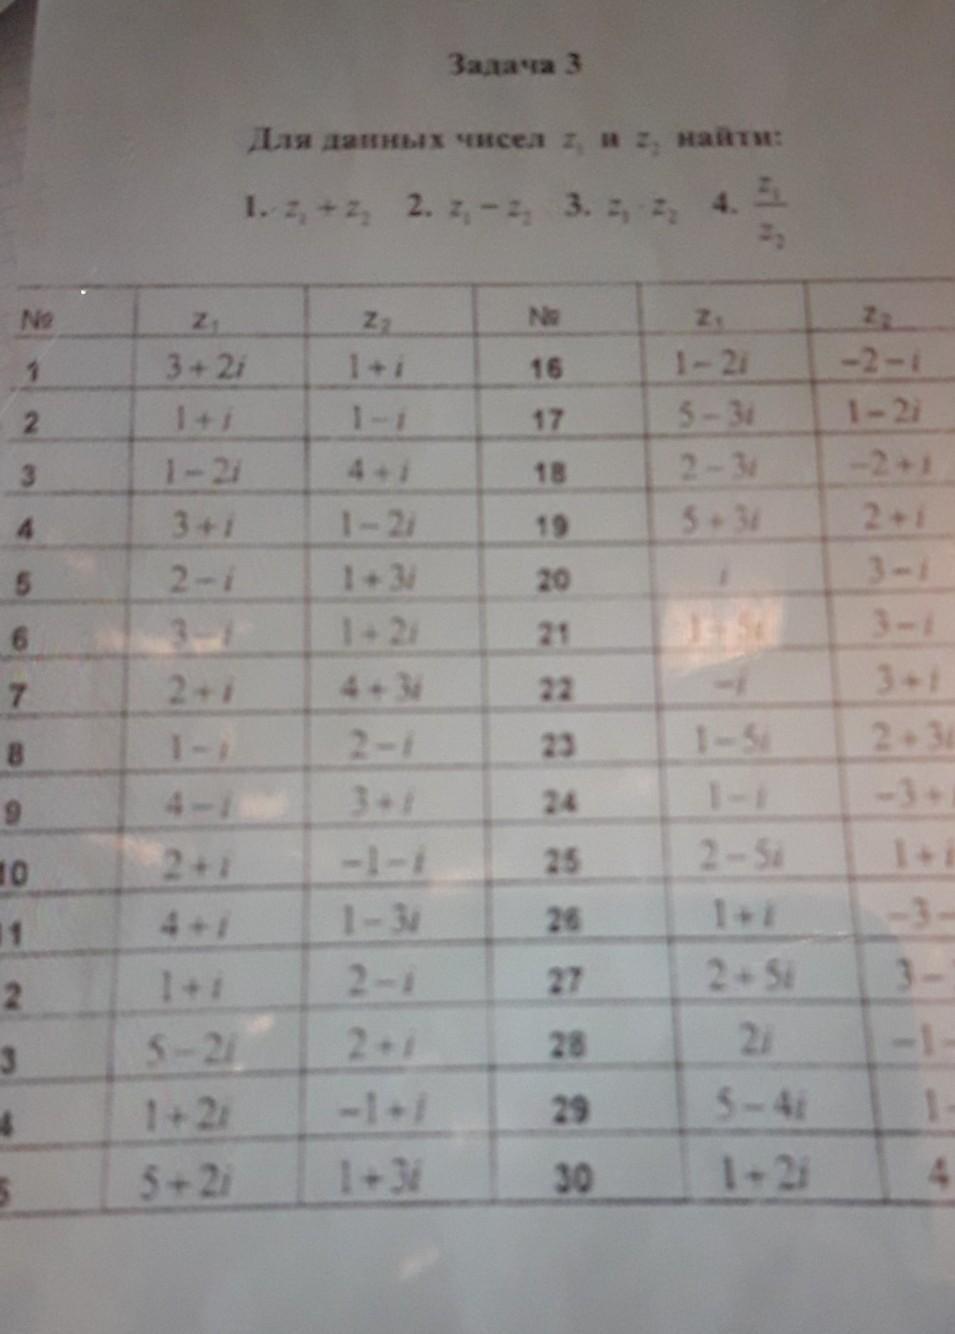 Задача 3
Для данных чисел z₁ и z₂ найти:
1. z₁ + z₂ 2. z₁ − z₂ 3. z₁ · z₂ 4. z₁/z₂
№ z₁ z₂ № z₁ z₂
1 3+2i 1+i 16 1−2i −2−i
2 1+i 1−i 17 5−3i 1−2i
3 1−2i 4+i 18 2−3i −2+i
4 3+i 1−2i 19 5+3i 2+i
5 2−i 1+3i 20 i 3−i
6 3−i 1+2i 21 3−i
7 2+i 4+3i 22 −i 3+i
8 1−i 2−i 23 1−5i 2+3i
9 4−i 3+i 24 1−i −3+
10 2+i −1−i 25 2−5i 1+i
1 4+i 1−3i 26 1+i −3−
2 1+i 2−i 27 2+5i 3−
3 5−2i 2+i 28 2i −1−
4 1+2i −1+i 29 5−4i 1
5 5+2i 1+3i 30 1+2i 4